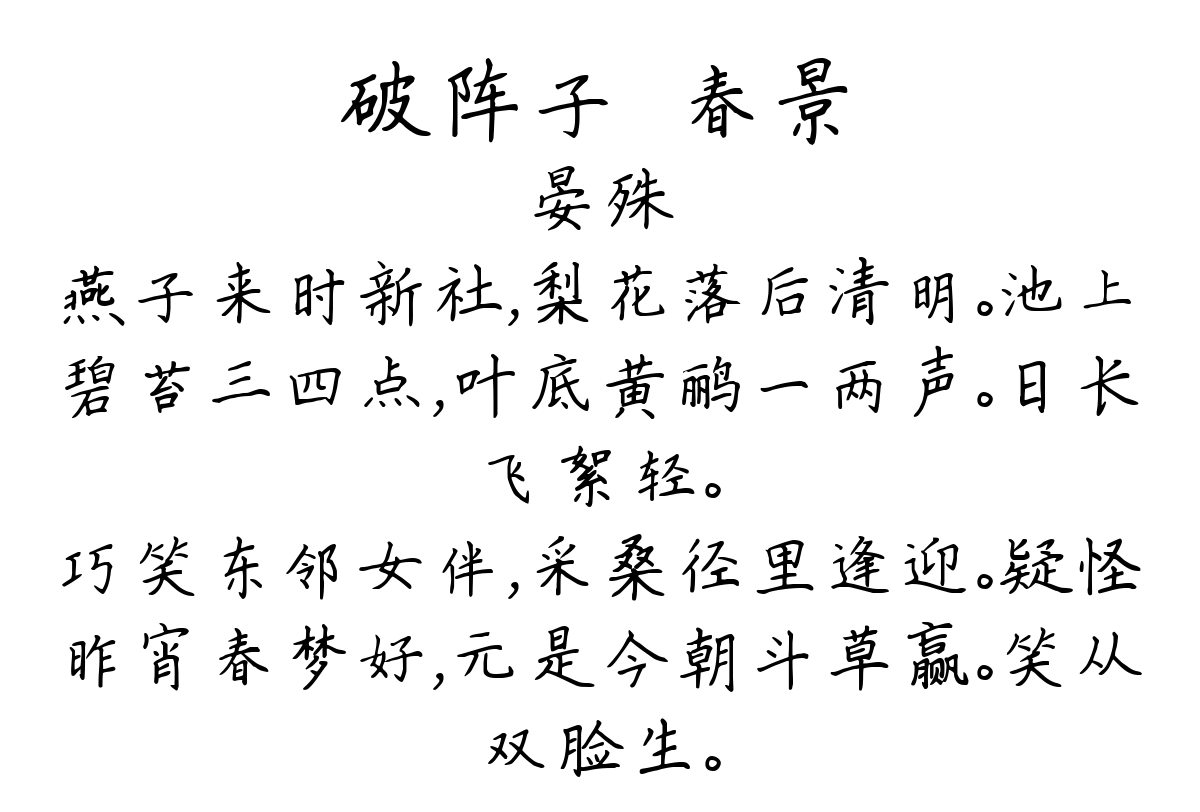 破阵子 春景
晏殊
燕子来时新社,梨花落后清明。池上
碧苔三四点,叶底黄鹂一两声。日长
飞絮轻。
巧笑东邻女伴,采桑径里逢迎。疑怪
昨宵春梦好,元是今朝斗草赢。笑从
双脸生。